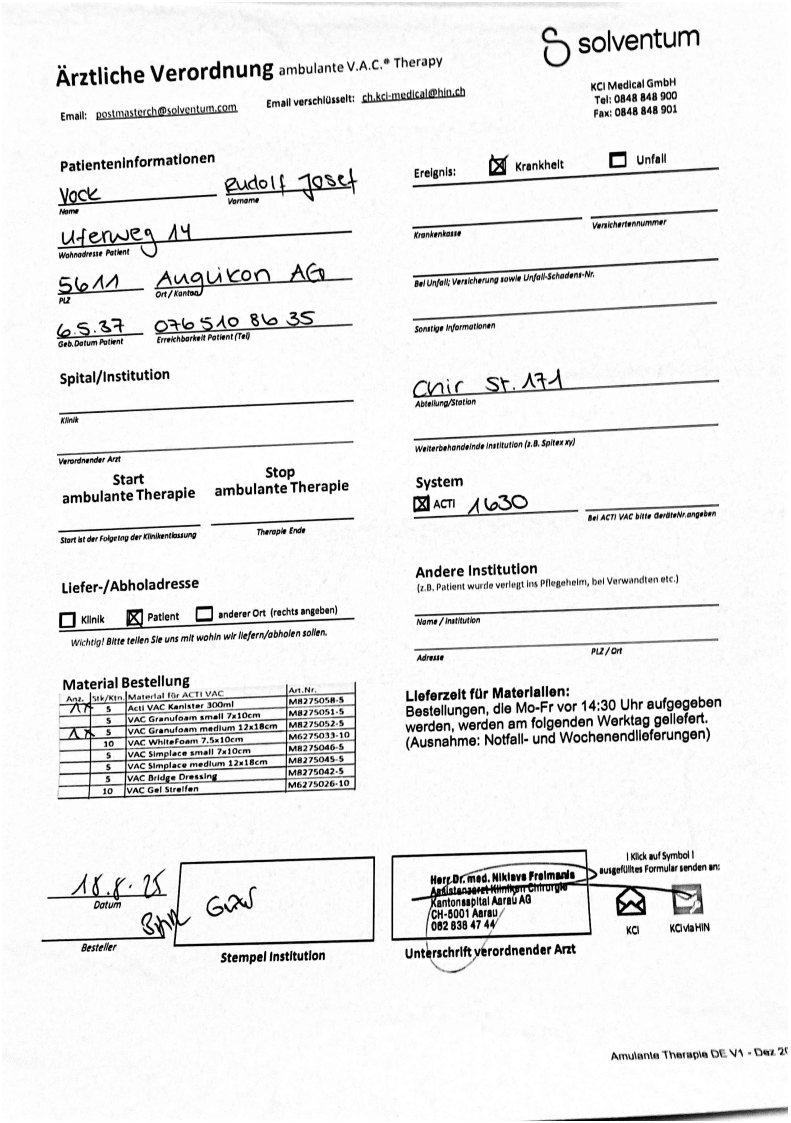 solventum
Ärztliche Verordnung ambulante V.A.C.® Therapy
Email: postmasterch@solventum.com Email verschlüsselt: ch.kci-medical@hin.ch
KCI Medical GmbH
Tel: 0848 848 900
Fax: 0848 848 901
Patienteninformationen
Vock Rudolf Josef
Name Vorname
Uferweg 14
Wohnadresse Patient
5611 Anglikon AG
PLZ Ort / Kanton
6.5.37 076 510 86 35
Geb.Datum Patient Erreichbarkeit Patient (Tel)
Ereignis: Krankheit Unfall
Krankenkasse Versichertennummer
Bei Unfall; Versicherung sowie Unfall-Schadens-Nr.
Sonstige Informationen
Spital/Institution
Klinik
Verordnender Arzt
Chir St. 171
Abteilung/Station
Weiterbehandelnde Institution (z.B. Spitex xy)
Start ambulante Therapie
Stop ambulante Therapie
Start ist der Folgetag der Klinikentlassung Therapie Ende
System
ACTI 1630
Bei ACTI VAC bitte GeräteNr.angeben
Liefer-/Abholadresse
Klinik Patient anderer Ort (rechts angeben)
Wichtig! Bitte teilen Sie uns mit wohin wir liefern/abholen sollen.
Andere Institution
(z.B. Patient wurde verlegt ins Pflegeheim, bei Verwandten etc.)
Name / Institution
Adresse PLZ / Ort
Material Bestellung
Anz. Stk/Ktn. Material für ACTI VAC Art.Nr.
1x 5 Acti VAC Kanister 300ml M8275058-5
5 VAC Granufoam small 7x10cm M8275051-5
1x 5 VAC Granufoam medium 12x18cm M8275052-5
10 VAC WhiteFoam 7.5x10cm M6275033-10
5 VAC Simplace small 7x10cm M8275046-5
5 VAC Simplace medium 12x18cm M8275045-5
5 VAC Bridge Dressing M8275042-5
10 VAC Gel Streifen M6275026-10
Lieferzeit für Materialien:
Bestellungen, die Mo-Fr vor 14:30 Uhr aufgegeben
werden, werden am folgenden Werktag geliefert.
(Ausnahme: Notfall- und Wochenendlieferungen)
18.8.25
Datum
Besteller
Stempel Institution
Herr Dr. med. Niklavs Freimanis
Assistenzarzt Kliniken Chirurgie
Kantonsspital Aarau AG
CH-5001 Aarau
062 838 47 44
Unterschrift verordnender Arzt
! Klick auf Symbol !
ausgefülltes Formular senden an:
KCI KCI via HIN
Amulante Therapie DE V1 - Dez 20